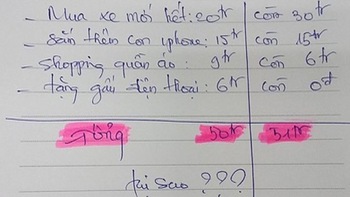 - Mua xe mới hết: 20tr còn 30tr
- sắm thêm con iphone: 15tr còn 15tr
- shopping quần áo: 9tr còn 6tr
- tặng gấu điện thoại: 6tr còn 0đ
Tổng 50tr 51tr
tại sao ???